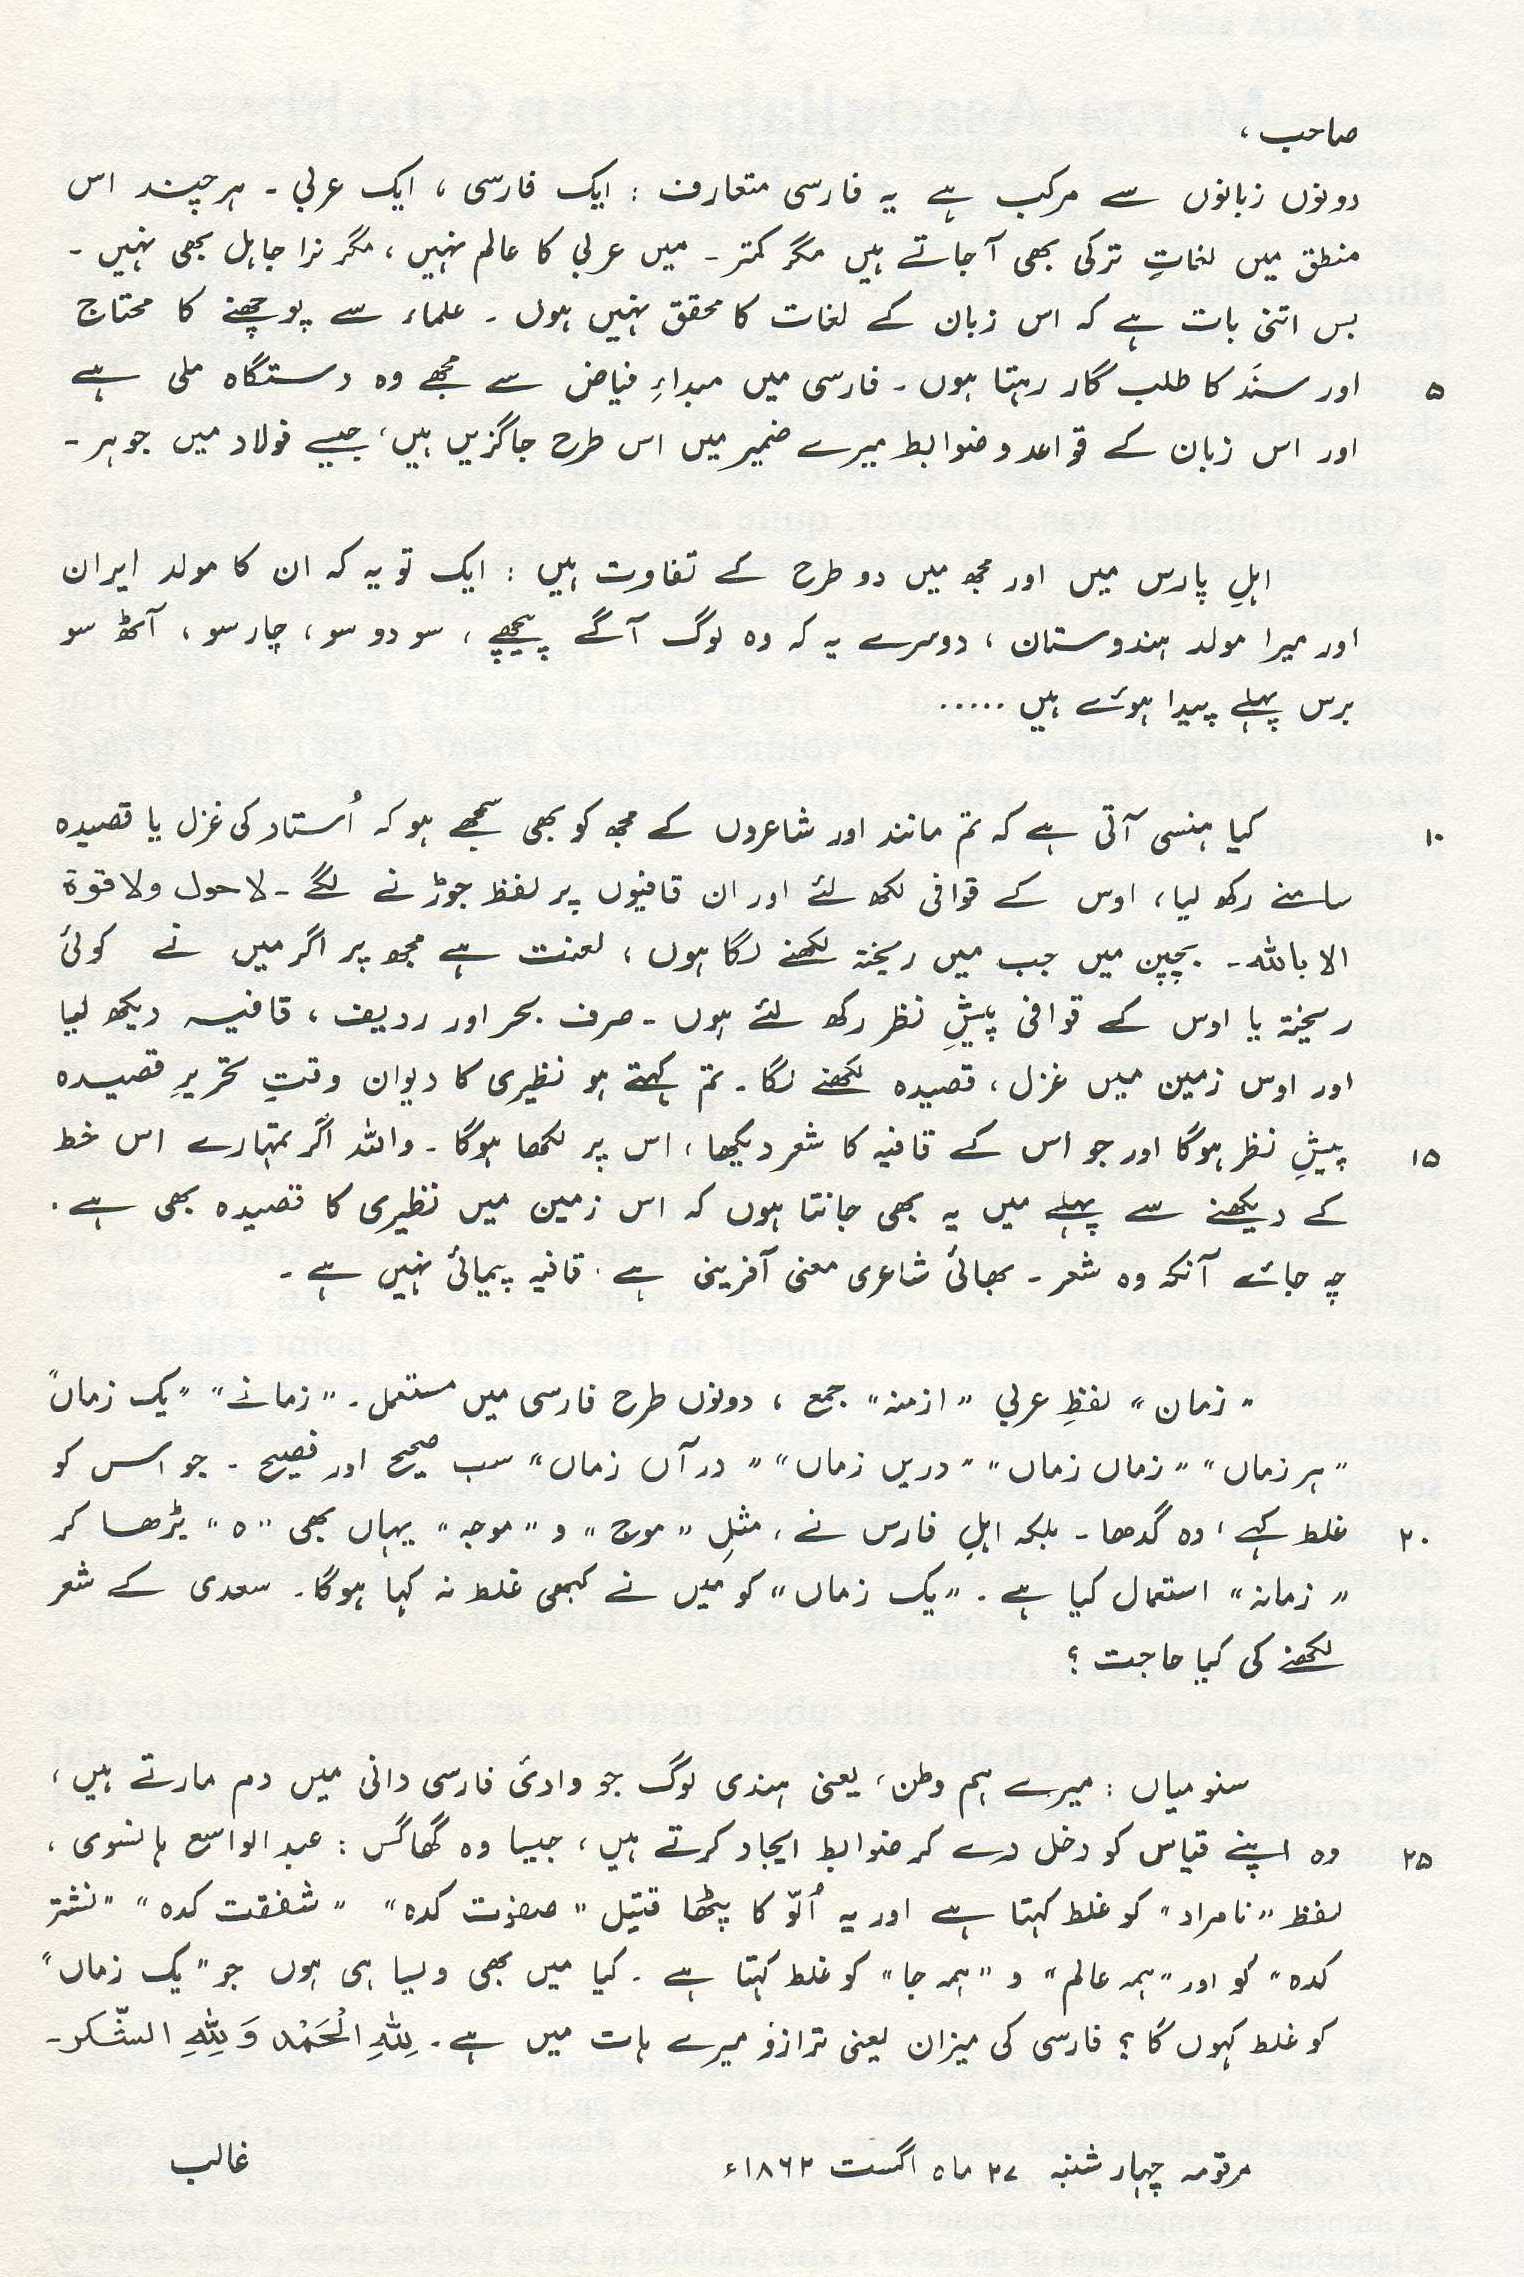 صاحب،
دونوں زبانوں سے مرکب ہے یہ فارسی متعارف : ایک فارسی ، ایک عربی ۔ ہرچند اس
منطق میں لغاتِ ترکی بھی آ جاتے ہیں مگر کمتر ۔ میں عربی کا عالم نہیں ، مگر نرا جاہل بھی نہیں ۔
بس اتنی بات ہے کہ اس زبان کے لغات کا محقق نہیں ہوں ۔ علماء سے پوچھنے کا محتاج
۵ اور سنَد کا طلب گار رہتا ہوں ۔ فارسی میں مبداءِ فیاض سے مجھے وہ دستگاہ ملی ہے
اور اس زبان کے قواعد و ضوابط میرے ضمیر میں اس طرح جاگزیں ہیں، جیسے فولاد میں جوہر ۔
اہلِ پارس میں اور مجھ میں دو طرح کے تفاوت ہیں : ایک تو یہ کہ ان کا مولد ایران
اور میرا مولد ہندوستان ، دوسرے یہ کہ وہ لوگ آگے پیچھے ، سو دو سو ، چار سو ، آٹھ سو
برس پہلے پیدا ہوئے ہیں .....
۱۰ کیا ہنسی آتی ہے کہ تم مانند اور شاعروں کے مجھ کو بھی سمجھے ہو کہ اُستاد کی غزل یا قصیدہ
سامنے رکھ لیا ، اوس کے قوافی لکھ لئے اور ان قافیوں پر لفظ جوڑنے لگے ۔ لا حول ولا قوۃ
الا باللہ ۔ بچپن میں جب میں ریختہ لکھنے لگا ہوں ، لعنت ہے مجھ پر اگر میں نے کوئی
ریختہ یا اوس کے قوافی پیشِ نظر رکھ لئے ہوں ۔ صرف بحر اور ردیف ، قافیہ دیکھ لیا
اور اوس زمین میں غزل ، قصیدہ لکھنے لگا ۔ تم کہتے ہو نظیری کا دیوان وقتِ تحریرِ قصیدہ
۱۵ پیشِ نظر ہوگا اور جو اس کے قافیہ کا شعر دیکھا ، اس پر لکھا ہوگا ۔ واللہ اگر تمہارے اس خط
کے دیکھنے سے پہلے میں یہ بھی جانتا ہوں کہ اس زمین میں نظیری کا قصیدہ بھی ہے ۔
چہ جائے آنکہ وہ شعر ۔ بھائی شاعری معنی آفرینی ہے ، قافیہ پیمائی نہیں ہے ۔
"زمان" لفظِ عربی "ازمنہ" جمع ، دونوں طرح فارسی میں مستعمل ۔ "زمانے" "یک زماں"
"ہر زماں" "زماں زماں" "دریں زماں" "در آں زماں" سب صحیح اور فصیح ۔ جو اس کو
۲۰ غلط کہے ، وہ گدھا ۔ بلکہ اہلِ فارس نے ، مثلِ "موج" و "موجہ" یہاں بھی "ہ" بڑھا کر
"زمانہ" استعمال کیا ہے ۔ "یک زماں" کو میں نے کبھی غلط نہ کہا ہوگا ۔ سعدی کے شعر
لکھنے کی کیا حاجت ؟
سنو میاں : میرے ہم وطن ، یعنی ہندی لوگ جو وادئ فارسی دانی میں دم مارتے ہیں ،
۲۵ وہ اپنے قیاس کو دخل دے کر ضوابط ایجاد کرتے ہیں ، جیسا وہ گھاگس : عبد الواسع ہانسوی ،
لفظ "نامراد" کو غلط کہتا ہے اور یہ اُلّو کا پٹھا قتیل "صفوت کدہ" "شفقت کدہ" "نشتر
کدہ" کو اور "ہمہ عالم" و "ہمہ جا" کو غلط کہتا ہے ۔ کیا میں بھی ویسا ہی ہوں جو "یک زماں"
کو غلط کہوں گا ؟ فارسی کی میزان یعنی ترازو میرے ہات میں ہے ۔ لِلّٰہِ الْحَمْد وَ لِلّٰہِ الشّکر ۔
مرقومہ چہار شنبہ ۲۷ ماہ اگست ۱۸۶۲ء غالب